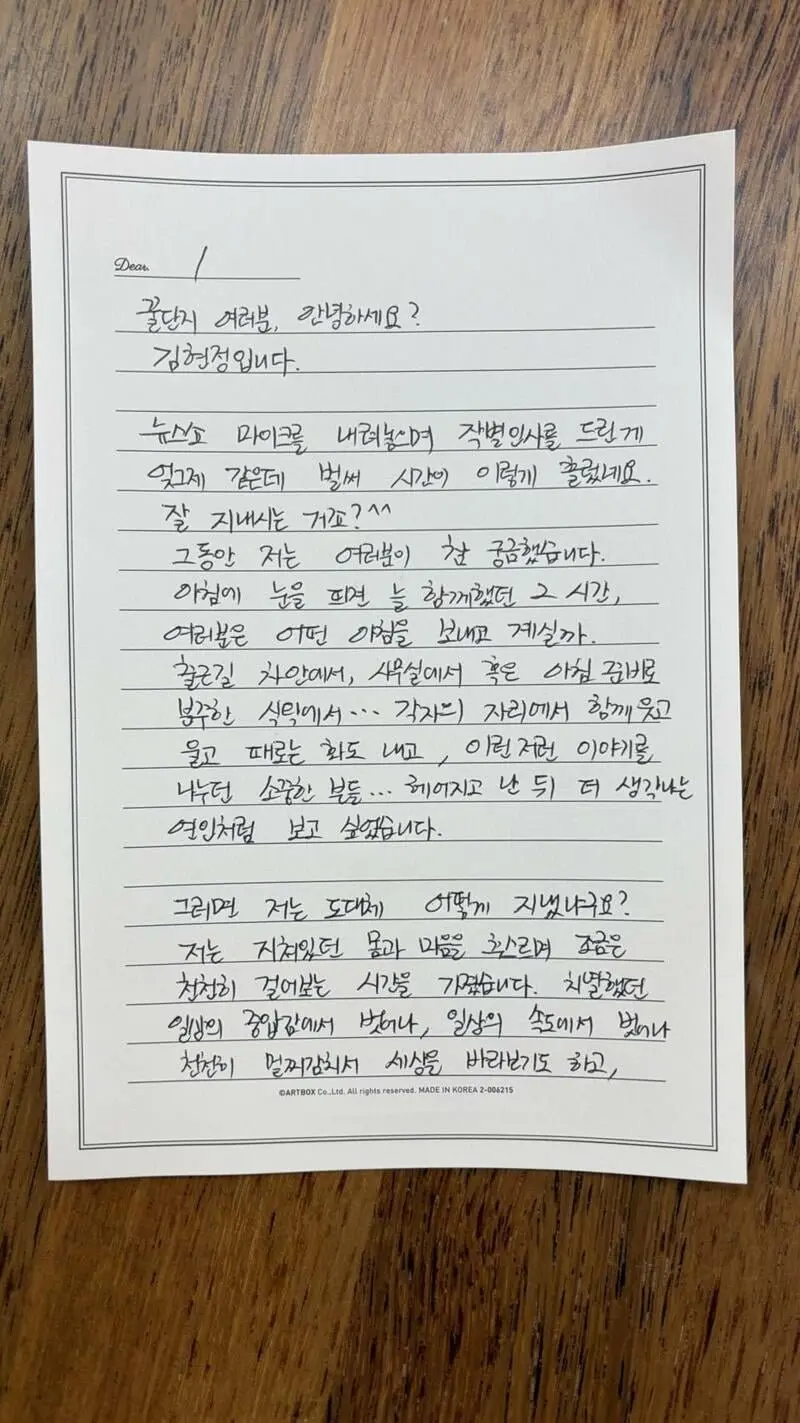 Dear. 1
꿀단지 여러분, 안녕하세요?
김현정입니다.
뉴스쇼 마이크를 내려놓으며 작별인사를 드린게
엊그제 같은데 벌써 시간이 이렇게 흘렀네요.
잘 지내시는 거죠?^^
그동안 저는 여러분이 참 궁금했습니다.
아침에 눈을 뜨면 늘 함께했던 그 시간,
여러분은 어떤 아침을 보내고 계실까.
출근길 차안에서, 사무실에서 혹은 아침 준비로
분주한 식탁에서... 각자의 자리에서 함께 웃고
울고 때로는 화도 내고, 이런저런 이야기를
나누던 소중한 분들... 헤어지고 난 뒤 더 생각나는
연인처럼 보고 싶었습니다.
그러면 저는 도대체 어떻게 지냈냐구요?
저는 지쳐있던 몸과 마음을 추스르며 조금은
천천히 걸어보는 시간을 가졌습니다. 치열했던
일상의 중압감에서 벗어나, 일상의 속도에서 벗어나
천천히 멀찌감치서 세상을 바라보기도 하고,
©ARTBOX Co.,Ltd. All rights reserved. MADE IN KOREA 2-006215